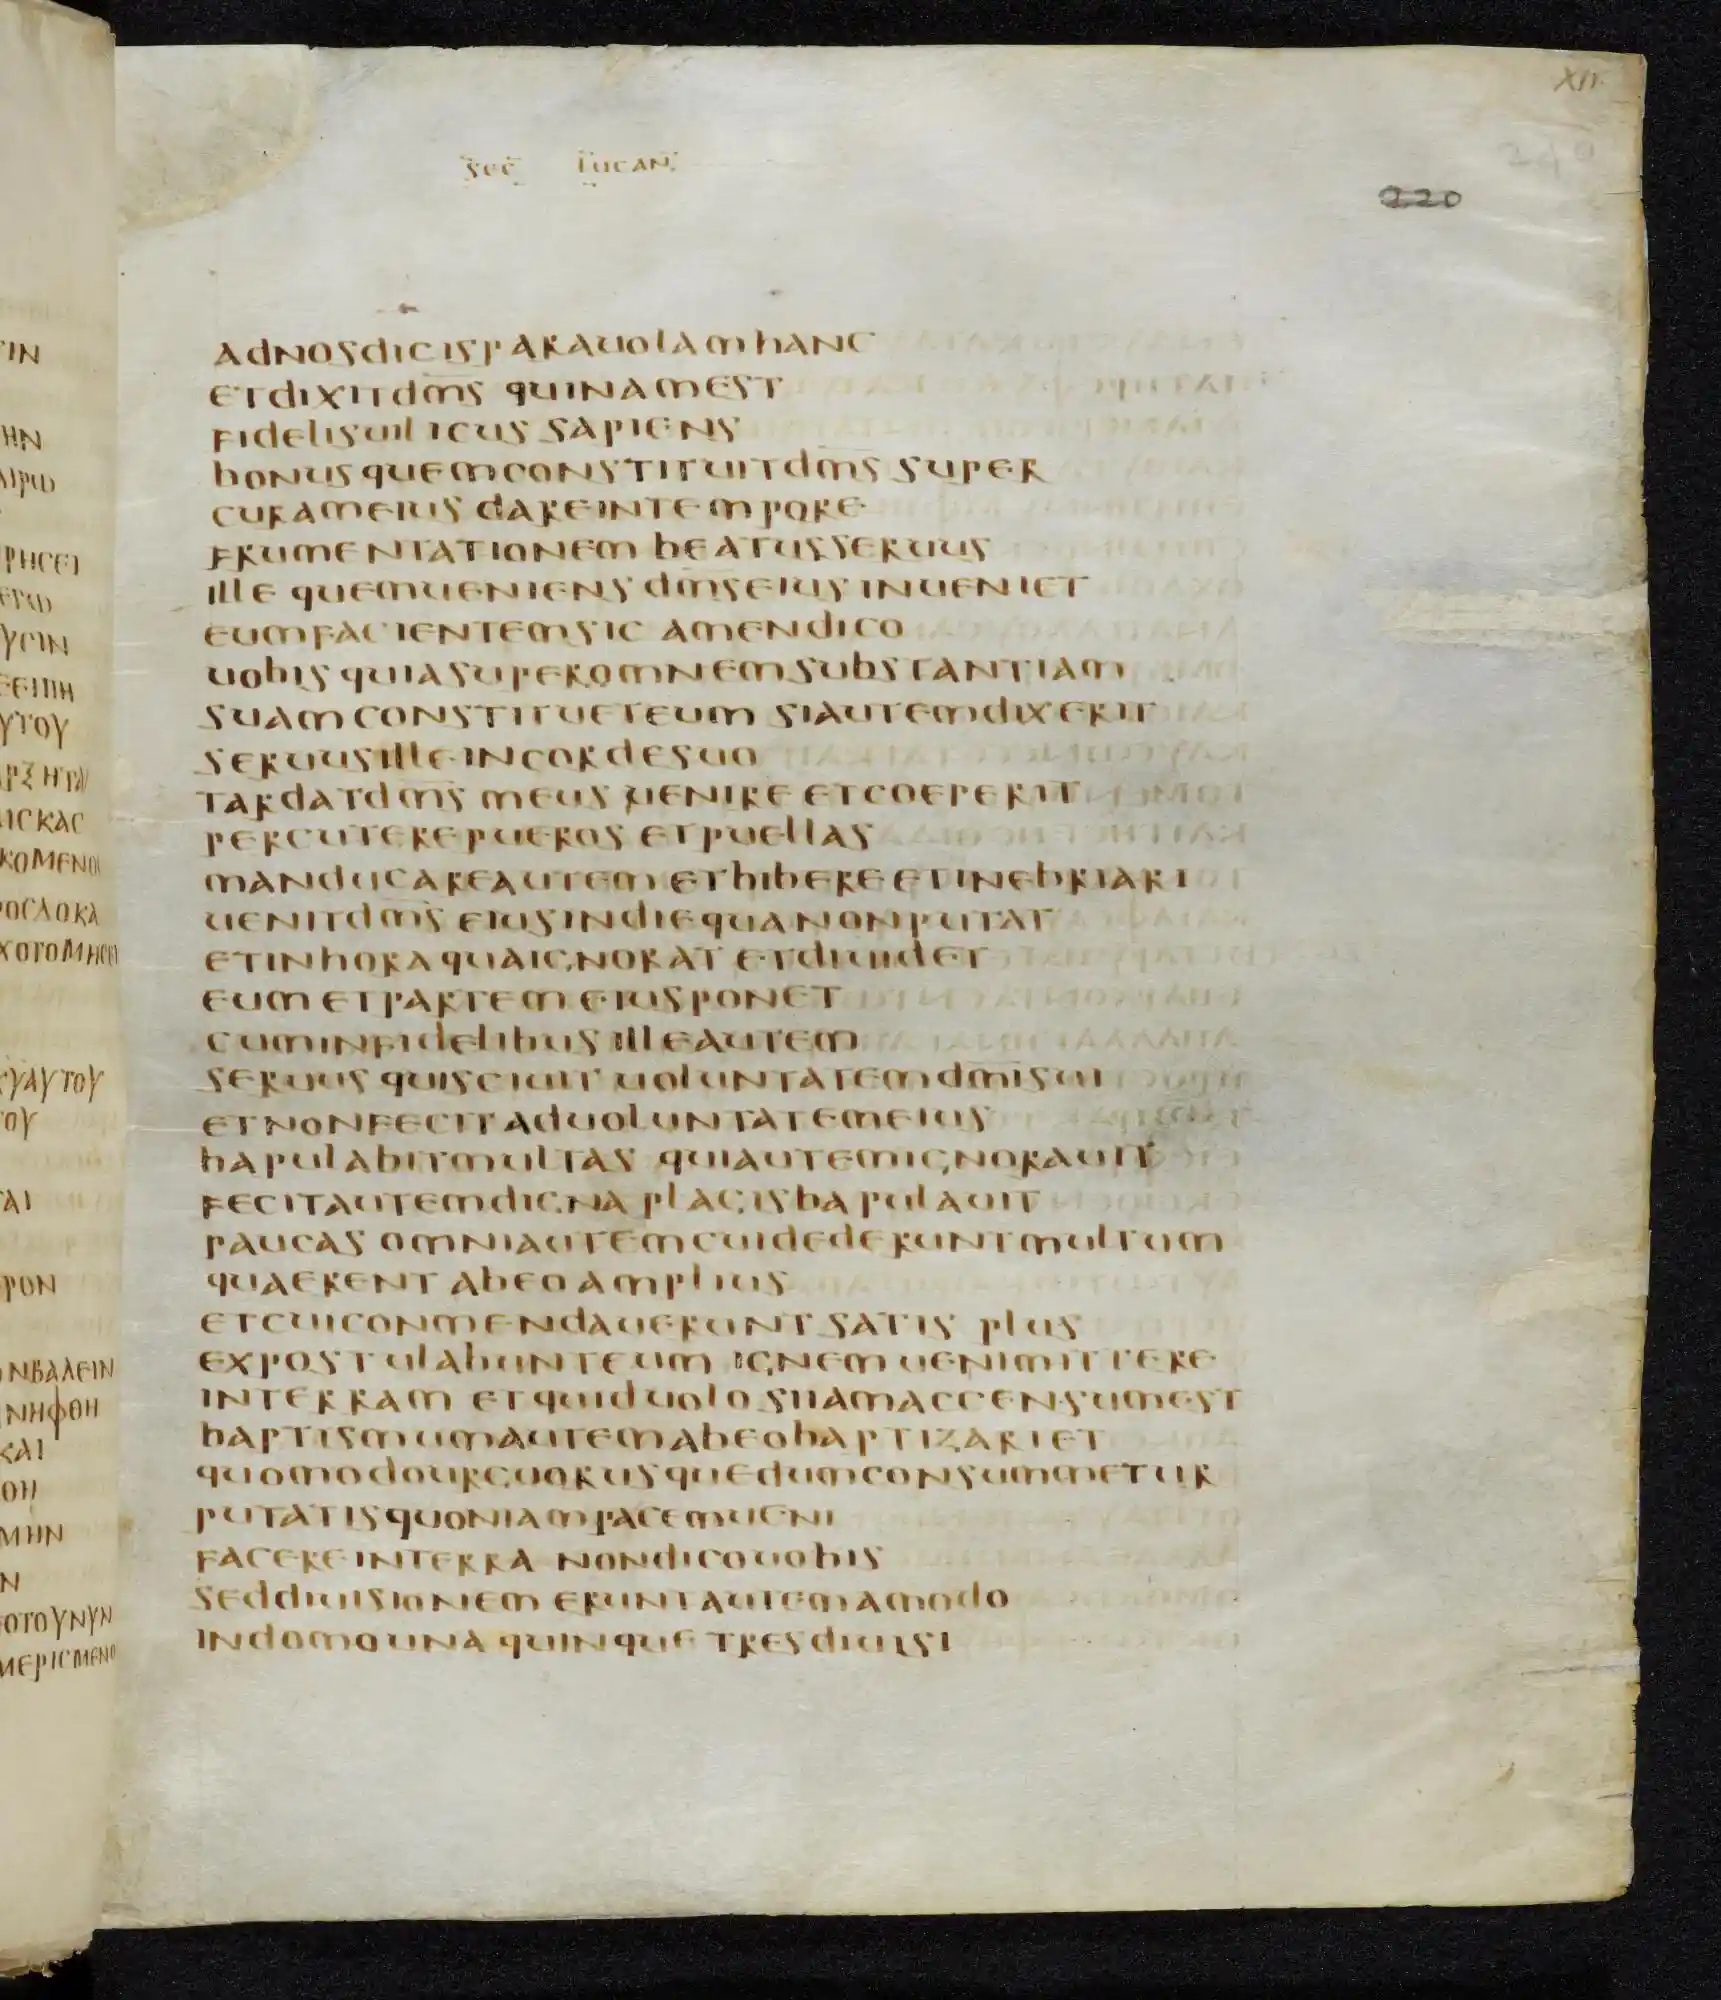 XII
240
220
sec lucan
adnosdicisparauolamhanc
etdixitdm̅s quinamest
fidelisuilicus sapiens
bonusquemconstituitdm̅s super
curameius dareintempore
frumentationem beatusseruus
ille quemueniens dm̅seius inueniet
eumfacientemsic amendico
uobis quiasuperomnemsubstantiam
suamconstitueteum siautemdixerit
seruusilleincordesuo
tardatdm̅s meus uenire etcoeperit
percuterepueros etpuellas
manducareautem etbibere etinebriari
uenitdm̅s eiusindiequanonputat
etinhoraquaignorat etdiuidet
eum etpartem eiusponet
cuminfidelibus illeautem
seruus quisciuit uoluntatemdm̅isui
etnonfecitaduoluntatemeius
bapulabitmultas quiautemignorauit
fecitautemdigna plagisbapulauit
paucas omniautemcuidederuntmultum
quaerent abeoamplius
etcuiconmendauerunt satis plus
expostulabunteum ignem uenimittere
interram etquiduolo siiamaccensumest
baptismumautemabeobaptizari et
quomodourguorusquedumconsummetur
putatisquoniampacemueni
facereinterra nondicouobis
seddiuisionem eruntautemamodo
indomouna quinque tresdiuisi